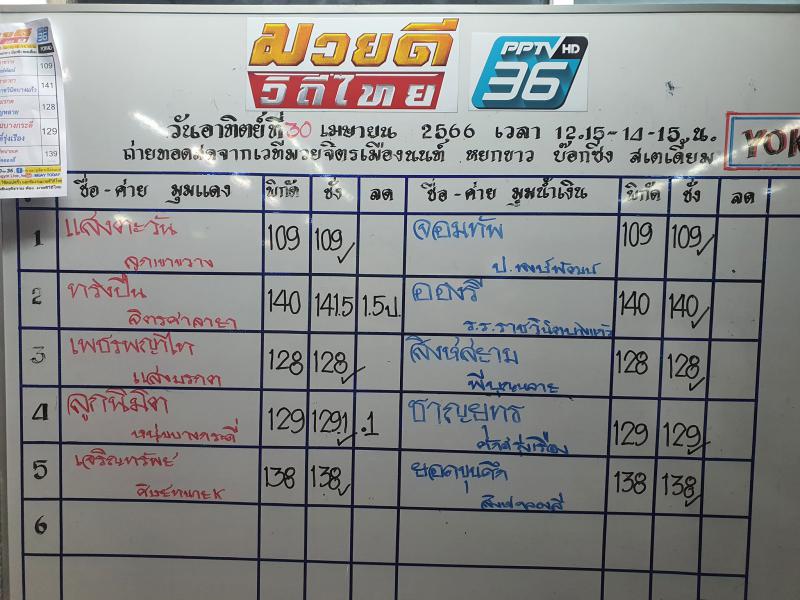 มวยดี
วิถีไทย
PPTV HD
36
วันอาทิตย์ที่ 30 เมษายน 2566 เวลา 12.15-14-15 น.
ถ่ายทอดสดจากเวทีมวยจิตรเมืองนนท์ หยกขาว บ๊อกซิ่ง สเตเดี้ยม
ชื่อ - ค่าย มุมแดง พิกัด ชั่ง ลด ชื่อ - ค่าย มุมน้ำเงิน พิกัด ชั่ง ลด
1 แสงตะวัน 109 109 จอมทัพ 109 109
ลูกเขาขวาง
2 ทรงปืน 140 141.5 1.5ป. 140 140
จิตรศาลายา ร.ร.ราชวินิตบางแก้ว
3 เพชรพญาไท 128 128 สิงห์สยาม 128 128
แสงมรกต
4 ลูกนิมิต 129 129.1 .1 ชาญยุทธ 129 129
หนุ่มบางกระดี่
5 เจริญทรัพย์ 138 138 ยอดขุนศึก 138 138
6
109
141
128
129
139